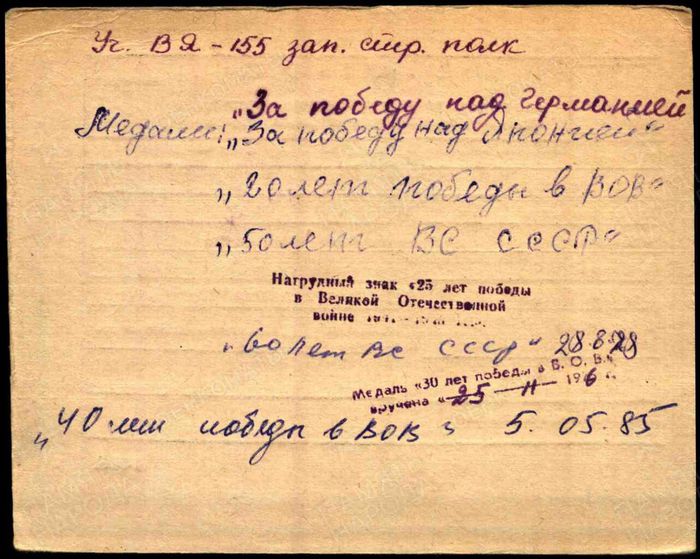 Уч. ВЯ - 155 зап. стр. полк
„За победу над Германией
Медали: „За победу над Японией“
„20 лет победы в ВОВ“
„50 лет ВС СССР“
Нагрудный знак «25 лет победы
в Великой Отечественной
войне
„60 лет ВС СССР“ 28.8.78
Медаль «30 лет победы в В. О. В.»
вручена « 25 — II — 1976 г.
„40 лет победы в ВОВ“ 5. 05. 85